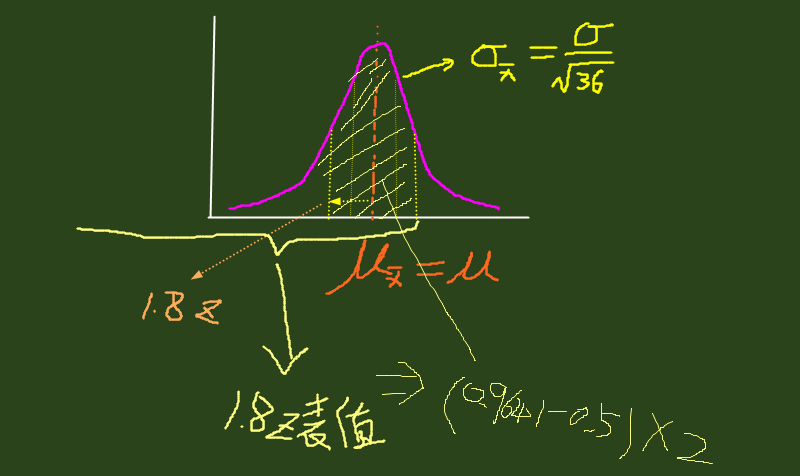 σx̄ = σ/√36
μx̄ = μ
1.8 z
1.8z表值 ⇒ (0.9641-0.5)×2